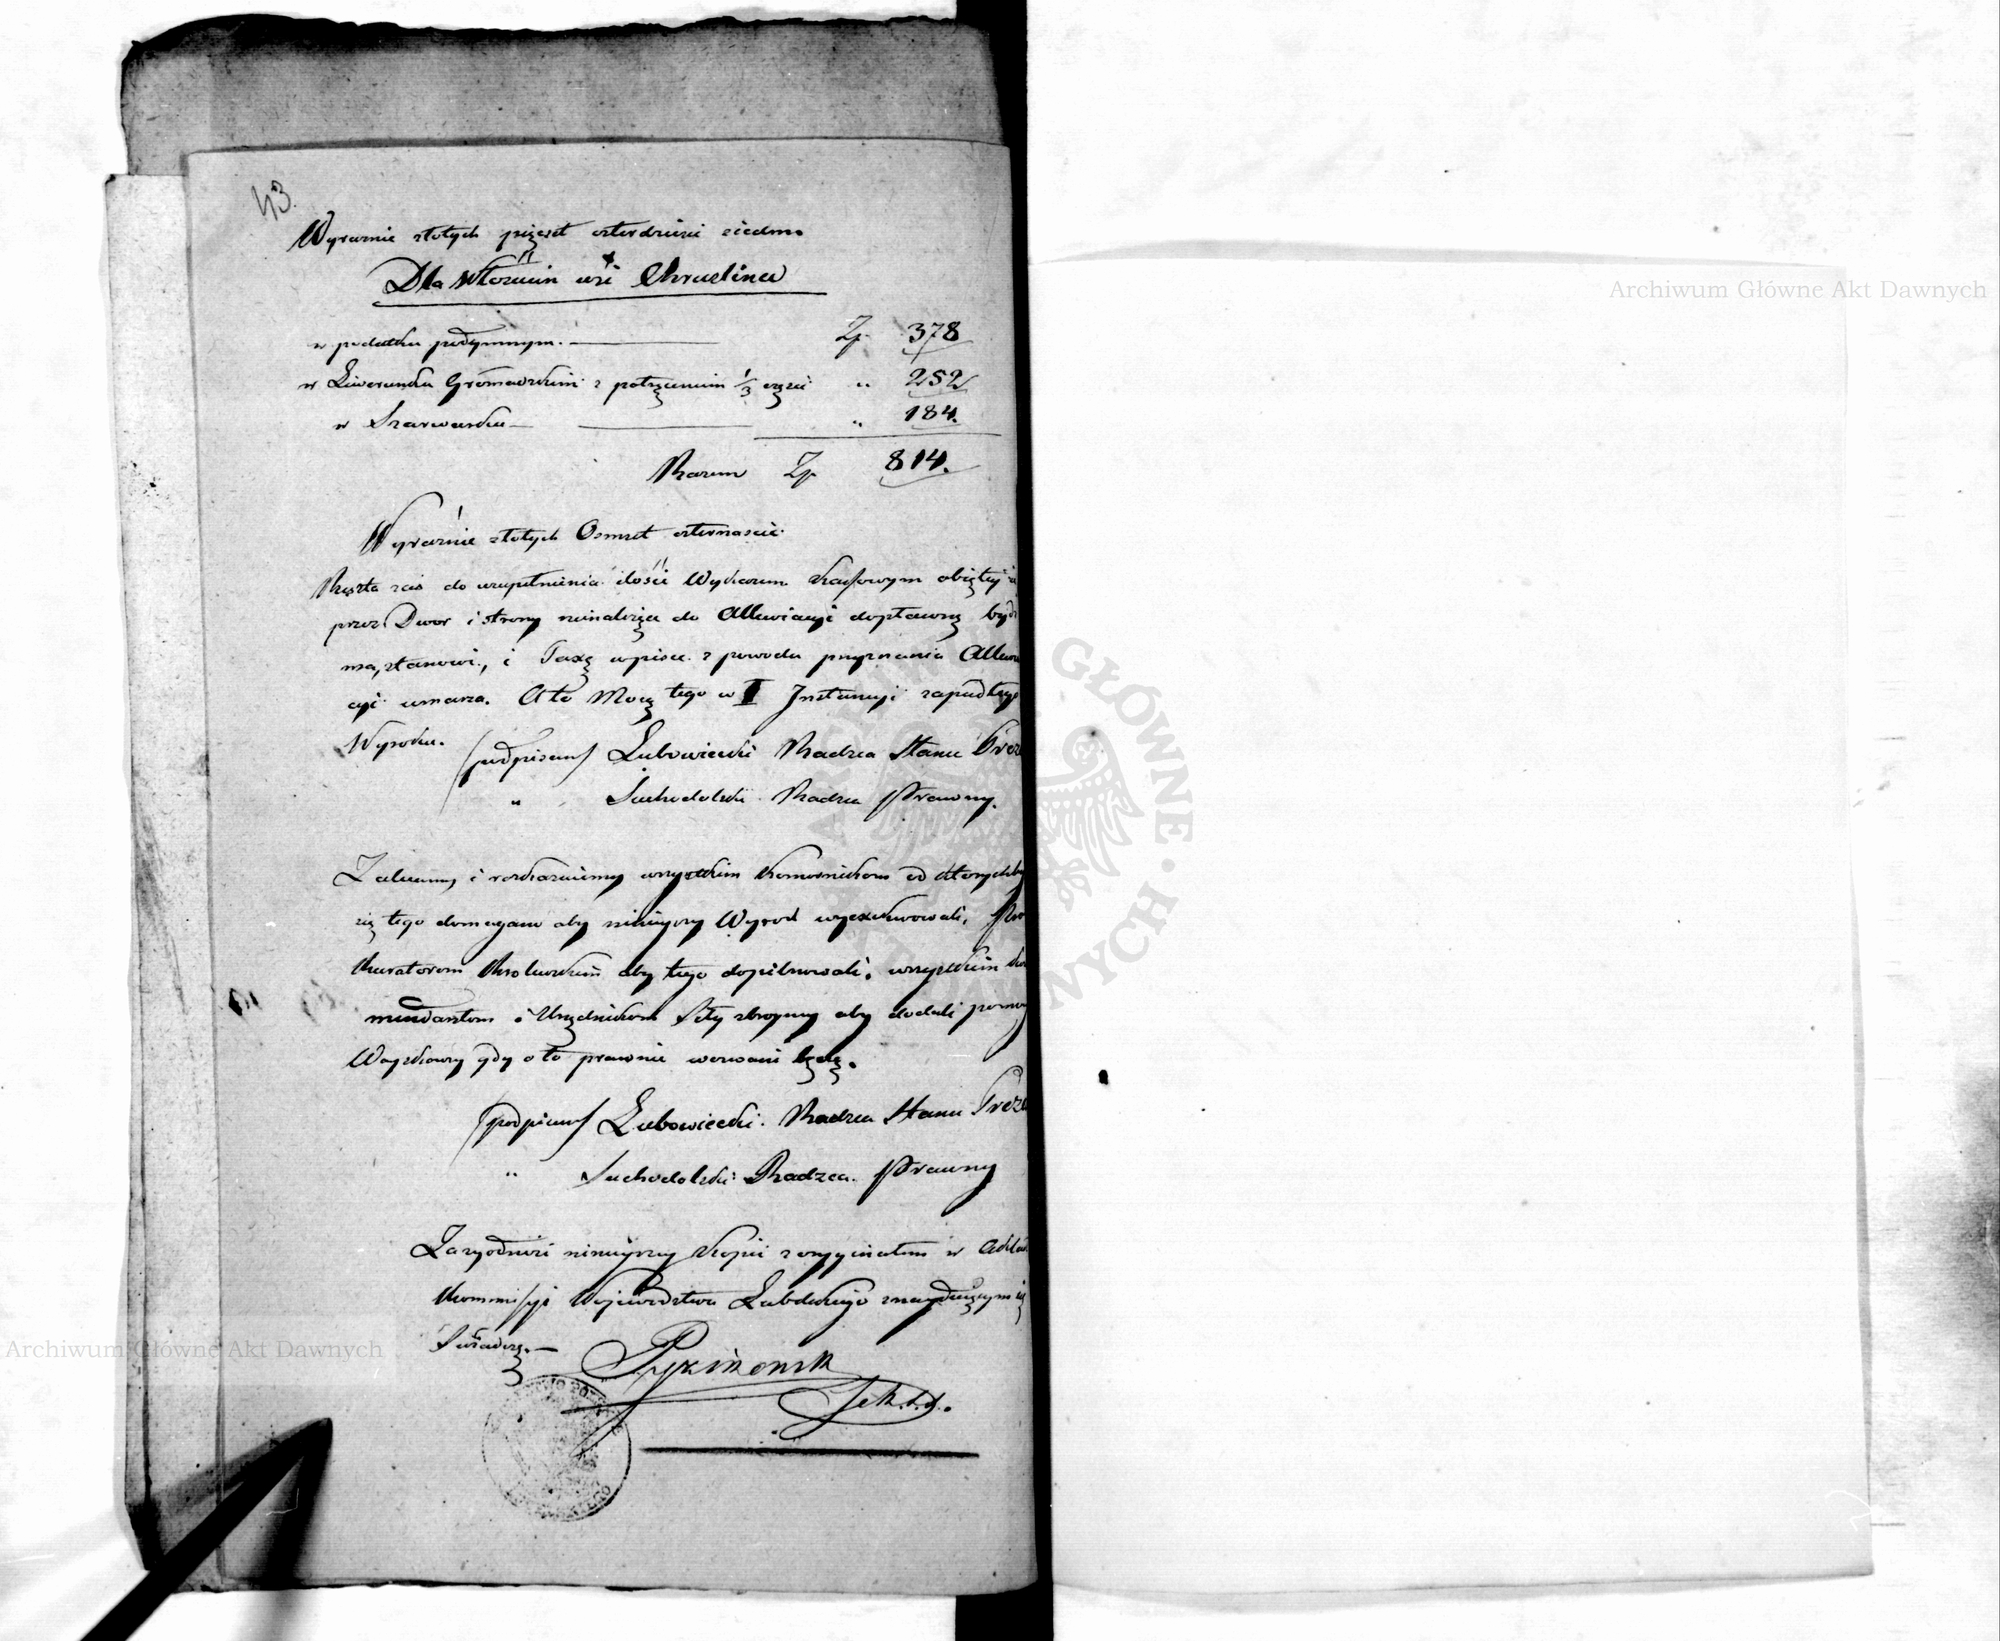 43.
Wyraznie złotych pięcset czterdzieści siedm.
Dla Włościan wsi Chruslina
w podatku podymnym. Zp. 378
w Liwerunku Gromadzkim z potrąceniem 1/3 części " 252
w Szarwarku " 184.
Razem Zp. 814.
Wyraźnie złotych Osmset czternascie.
Reszta zaś do uzupełnienia ilości Wykazem Kassowym obiętej
przez Dwor i strony nienależące do Allewiacyi dopłaconą bydź
ma, stanowi, i Taxę wpisu z powodu przyznania Allewia
cyi umarza. A to Mocą tego w I Instancyi zapadłego
Wyroku. (podpisano) Lubowiecki Radca Stanu Prez
" Suchodolski Radca Prawny.
Zalecamy i rozkazuiemy wszystkim Komornikom od ktorychby
się tego domagano aby ninieyszy Wyrok wyexekwowali, Pro
kuratorom Krolewskim aby tego dopilnowali, wszystkim Kom
mendantom i Urzędnikom Siły zbroyney aby dodali pomocy
Woyskowey gdy o to prawnie wezwani będą.
(podpisano) Lubowiecki. Radca Stanu Prez
" Suchodolski Radzca Prawny
Zazgodność ninieyszey Kopii z oryginałem w Aktach
Kommissyi Wojewodztwa Lubelskiego znayduiącym się
Swiadczę.
Sek.
Archiwum Główne Akt Dawnych
Archiwum Główne Akt Dawnych